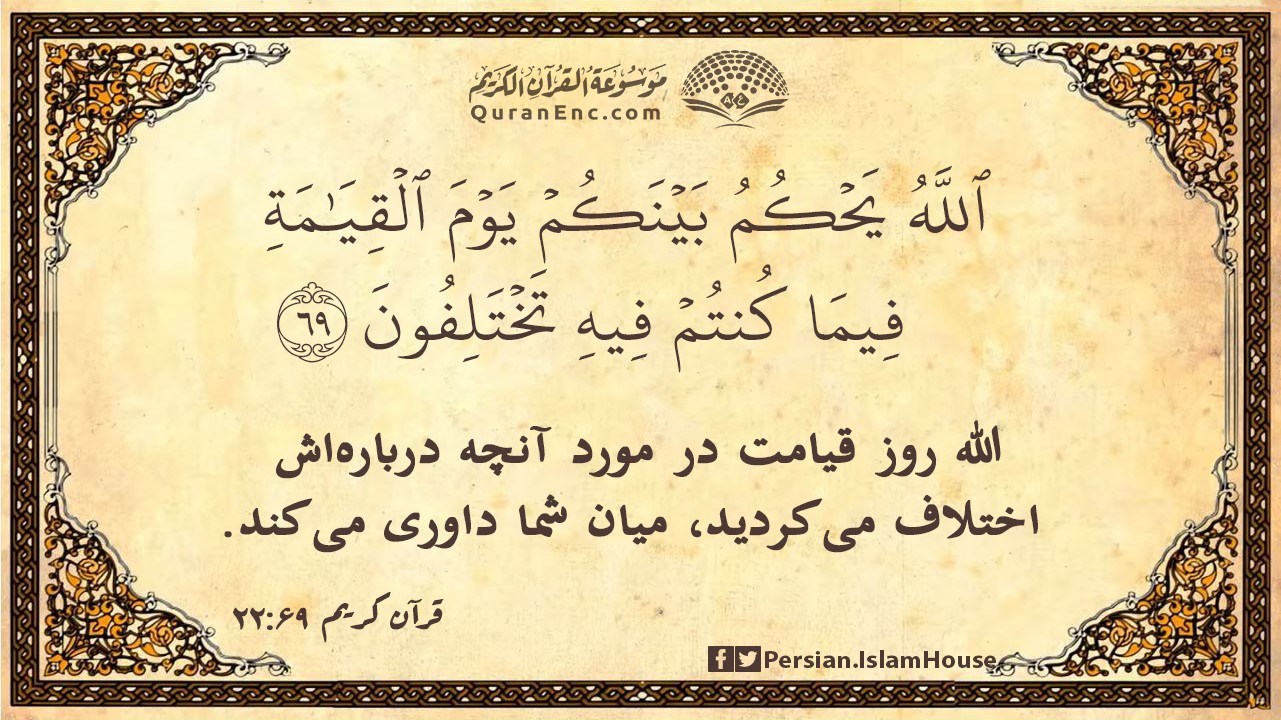 مَوْسُوعَةُ القُرْآنِ الكَرِيم
QuranEnc.com
ٱللَّهُ يَحۡكُمُ بَيۡنَكُمۡ يَوۡمَ ٱلۡقِيَٰمَةِ
فِيمَا كُنتُمۡ فِيهِ تَخۡتَلِفُونَ ٦٩
الله روز قیامت در مورد آنچه درباره‌اش
اختلاف می‌کردید، میان شما داوری می‌کند.
قرآن کریم ۲۲:۶۹
Persian.IslamHouse